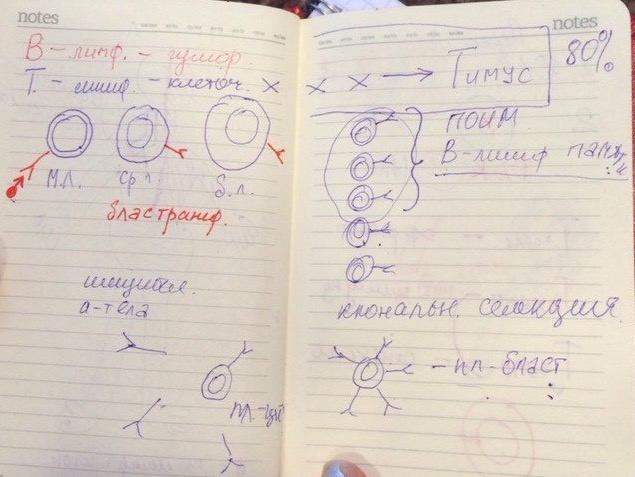 notes
В – лимф. – гумор.
Т. – лимф – клеточ. х
М.Л. ср Л. Б.Л.
бластрансф.
а-тела
пл.-цит
notes
80%
х х → Тимус
ПОИМ
В-лимф памяти
клональн. селекция
– пл-бласт